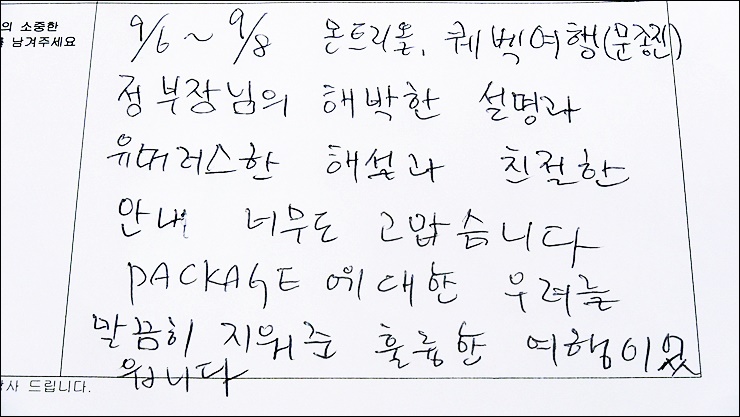 의 소중한
남겨주세요
9/6 ~ 9/8 몬트리올, 퀘벡여행(문종진)
정부장님의 해박한 설명과
유머러스한 해설과 친절한
안내 너무도 고맙습니다
PACKAGE에 대한 우려를
말끔히 지워준 훌륭한 여행이었
읍니다
사 드립니다.